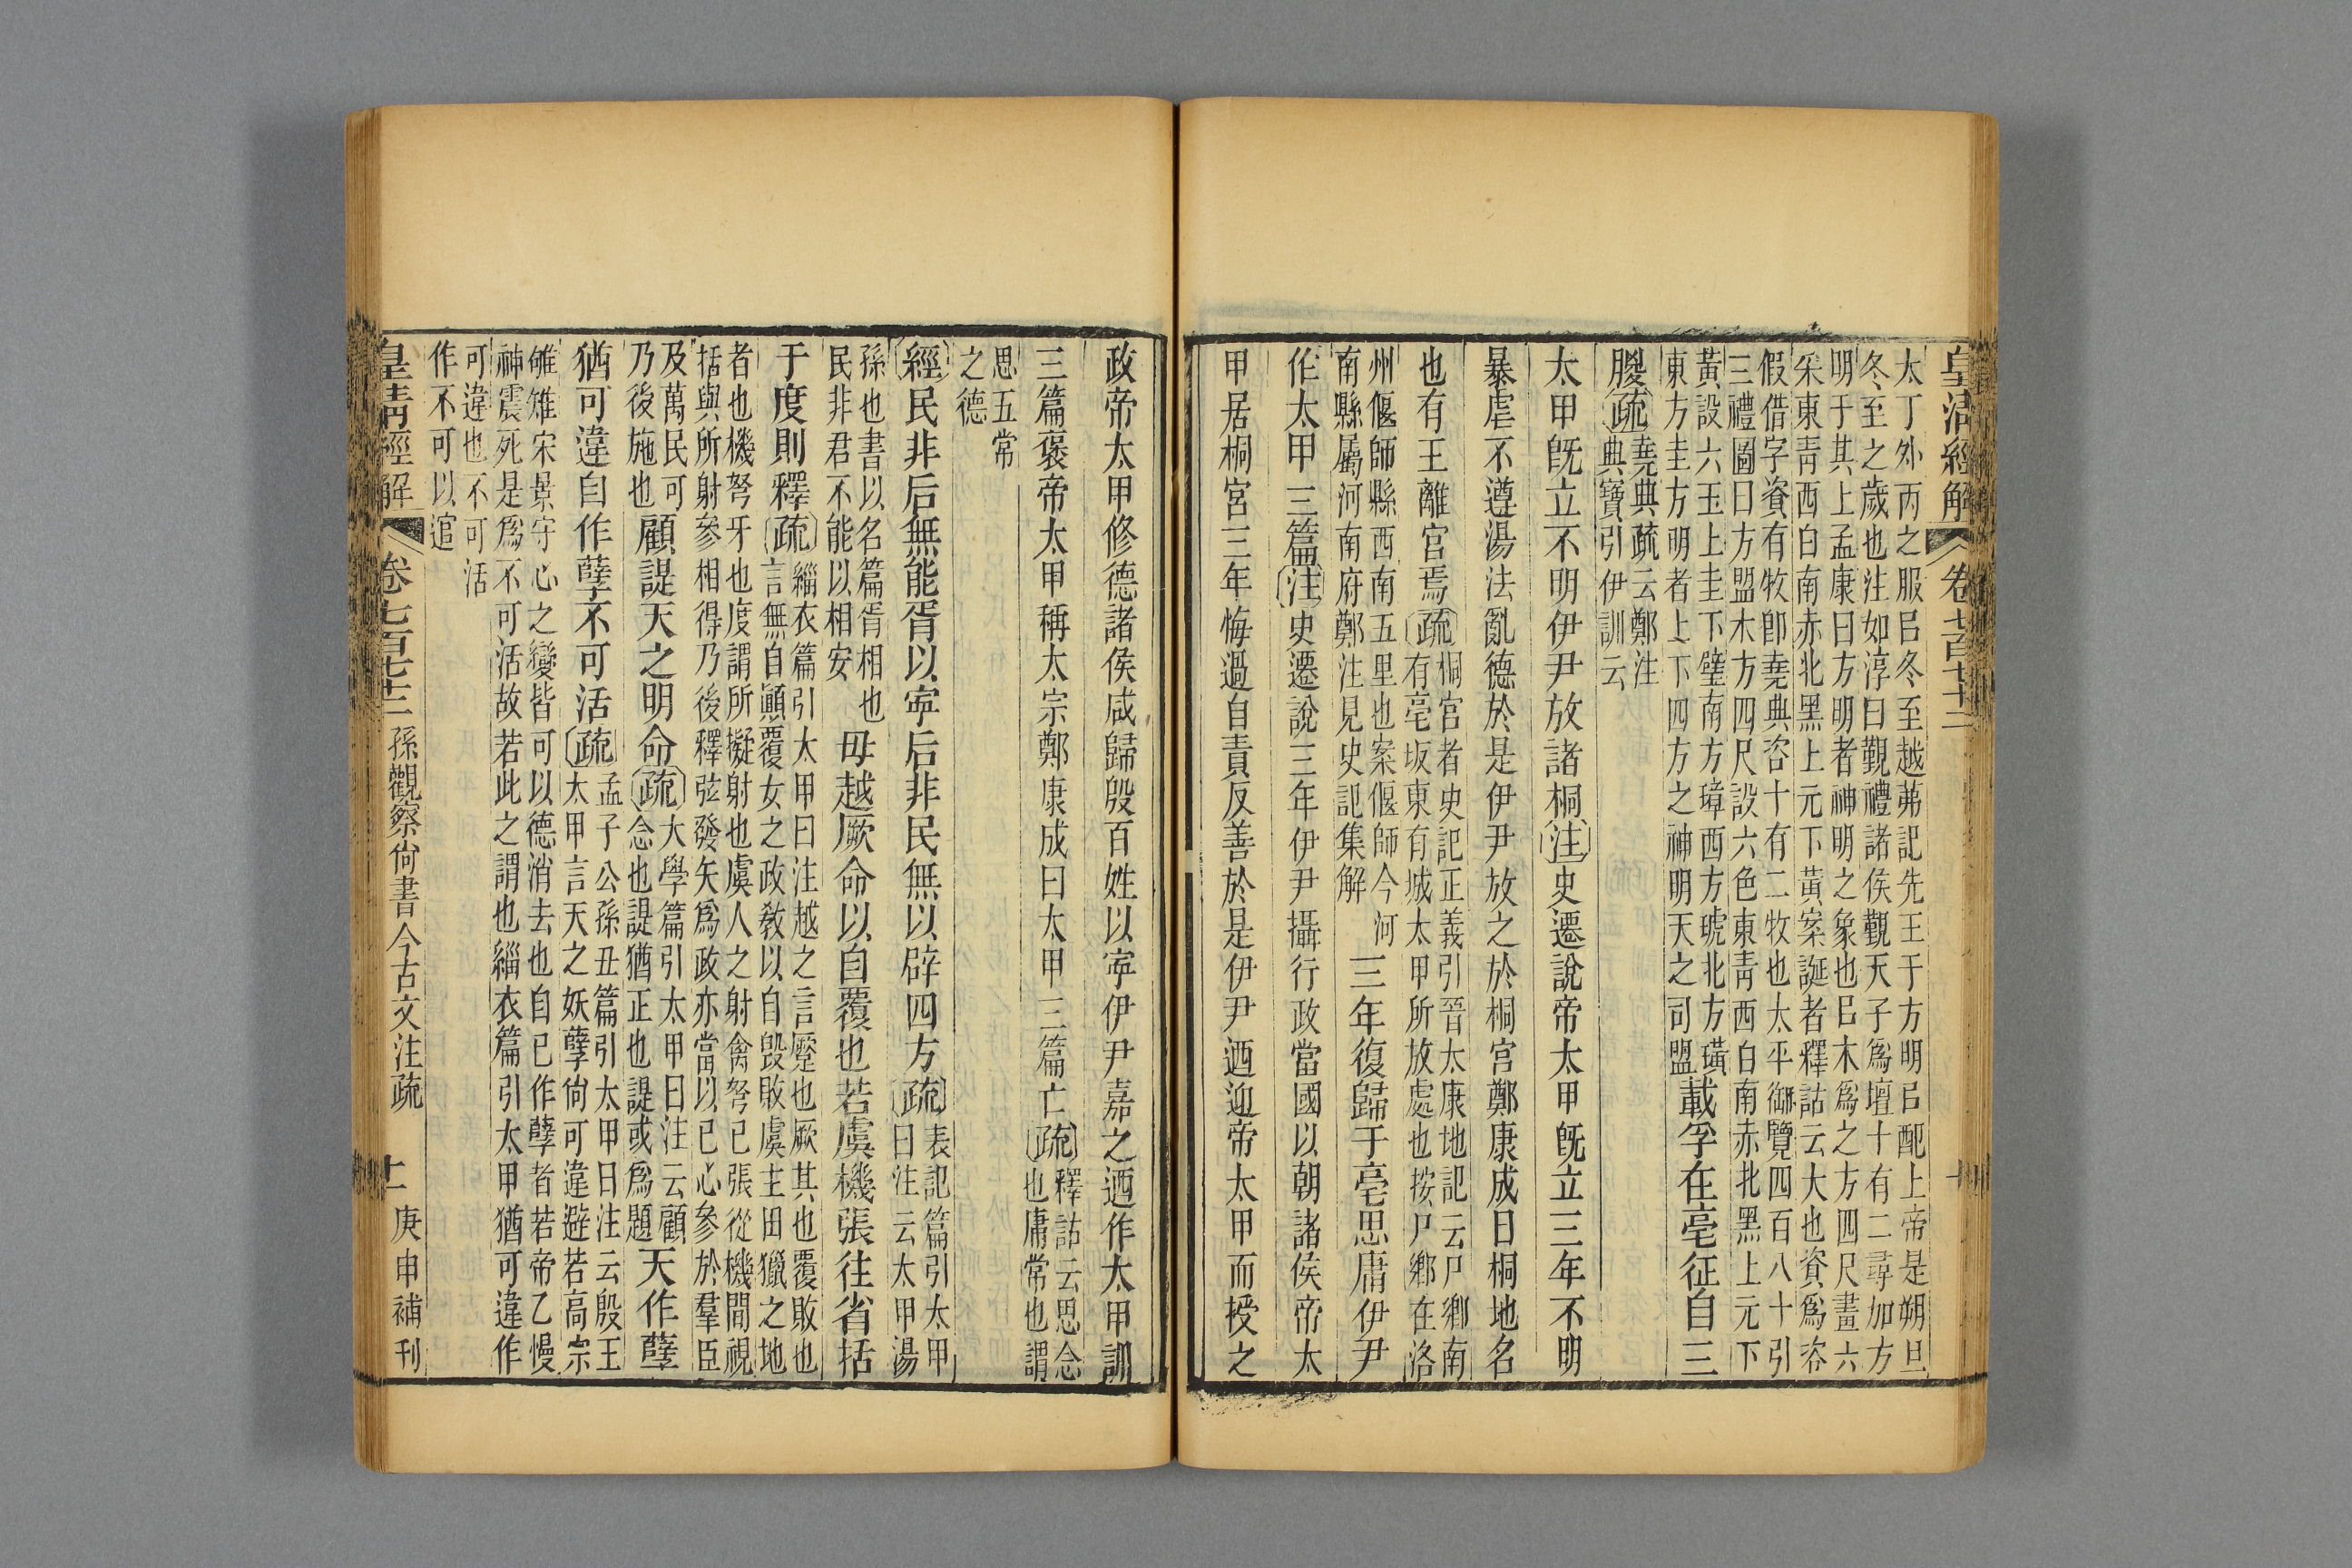 皇清經解 卷七百七十二 十
太丁外丙之服㠯冬至越茀記先王于方明㠯配上帝是朔旦
冬至之歲也注如淳曰覲禮諸侯覲天子爲壇十有二尋加方
明于其上孟康曰方明者神明之象也㠯木爲之方四尺畫六
采東靑西白南赤北黑上元下黃案誕者釋詁云大也資爲咨
假借字資有牧卽堯典咨十有二牧也太平御覽四百八十引
三禮圖曰方盟木方四尺設六色東靑西白南赤北黑上元下
黃設六玉上圭下璧南方璋西方琥北方璜
東方圭方明者上下四方之神明天之司盟
載孚在亳征自三
朡疏
堯典疏云鄭注
典寶引伊訓云
太甲旣立不明伊尹放諸桐注史遷說帝太甲旣立三年不明
暴虐不遵湯法亂德於是伊尹放之於桐宮鄭康成曰桐地名
也有王離官焉疏
桐宮者史記正義引晉太康地記云尸鄉南
有亳坂東有城太甲所放處也按尸鄉在洛
州偃師縣西南五里也案偃師今河
南縣屬河南府鄭注見史記集解
三年復歸于亳思庸伊尹
作太甲三篇注史遷說三年伊尹攝行政當國以朝諸侯帝太
甲居桐宮三年悔過自責反善於是伊尹迺迎帝太甲而授之
政帝太甲修德諸侯咸歸殷百姓以寧伊尹嘉之迺作太甲訓
三篇褒帝太甲稱太宗鄭康成曰太甲三篇亡疏
釋詁云思念
也庸常也謂
思五常
之德
經民非后無能胥以寧后非民無以辟四方疏
表記篇引太甲
曰注云太甲湯
孫也書以名篇胥相也
民非君不能以相安
毋越厥命以自覆也若虞機張往省括
于度則釋疏
緇衣篇引太甲曰注越之言蹷也厥其也覆敗也
言無自顚覆女之政教以自毀敗虞主田獵之地
者也機弩牙也度謂所擬射也虞人之射禽弩已張從機間視
括與所射參相得乃後釋弦發矢爲政亦當以已心參於羣臣
及萬民可
乃後施也
顧諟天之明命疏
大學篇引太甲曰注云顧
念也諟猶正也諟或爲題
天作孽
猶可違自作孽不可活疏
孟子公孫丑篇引太甲曰注云殷王
太甲言天之妖孽尙可違避若高宗
雊雉宋景守心之變皆可以德消去也自已作孽者若帝乙慢
神震死是爲不可活故若此之謂也緇衣篇引太甲猶可違作
可違也不可活
作不可以逭
皇清經解 卷七百七十二 孫觀察尙書今古文注疏 十一 庚申補刊